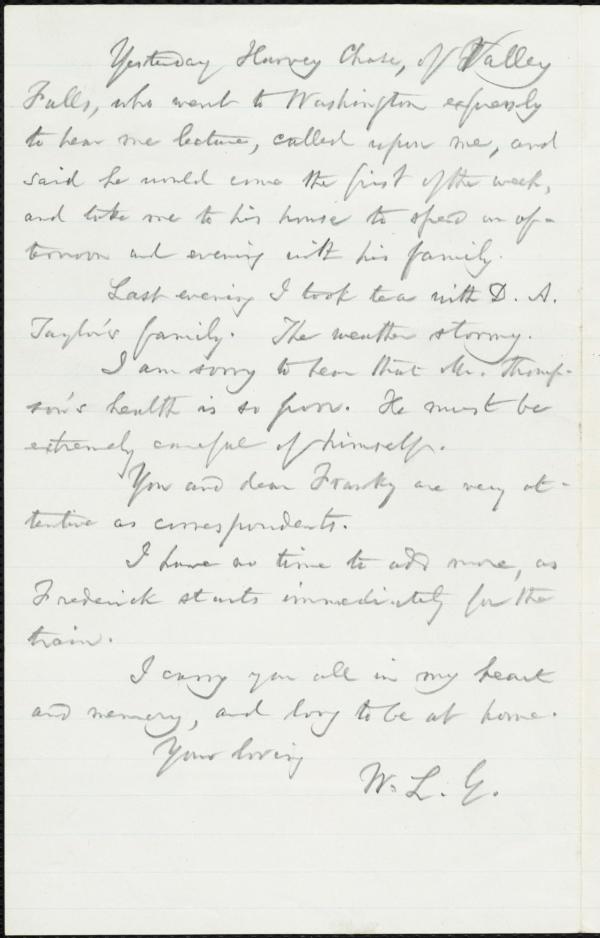 Yesterday Harvey Chase, of Valley
Falls, who went to Washington expressly
to hear me lecture, called upon me, and
said he would come the first of the week,
and take me to his house to spend an af-
ternoon and evening with his family.
Last evening I took tea with D. A.
Taylor's family. The weather stormy.
I am sorry to hear that Mr. Thomp-
son's health is so poor. He must be
extremely careful of himself.
You and dear Franky are very at-
tentive as correspondents.
I have no time to add more, as
Frederick starts immediately for the
train.
I carry you all in my heart
and memory, and long to be at home.
Your loving
W. L. G.